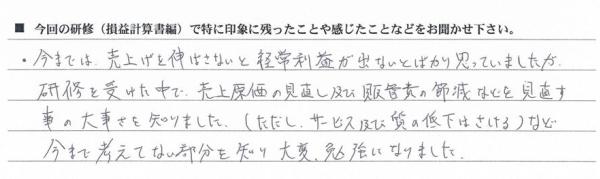 ■ 今回の研修（損益計算書編）で特に印象に残ったことや感じたことなどをお聞かせ下さい。
・今までは、売上げを伸ばさないと経常利益が出ないとばかり思っていましたが、
研修を受けた中で、売上原価の見直し及び販管費の節減などを見直す
事の大事さを知りました。（ただし、サービス及び質の低下はさける）など
今まで考えてない部分を知り大変、勉強になりました。